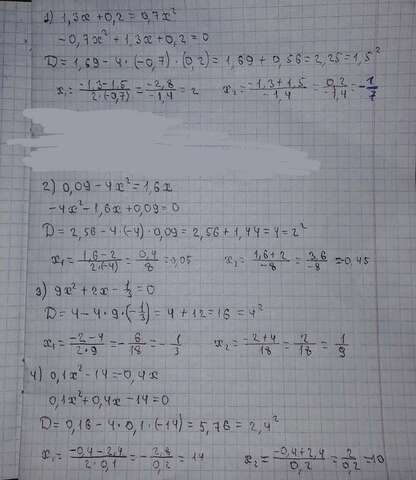 1) 1,3x + 0,2 = 0,7x²
-0,7x² + 1,3x + 0,2 = 0
D = 1,69 - 4 · (-0,7) · (0,2) = 1,69 + 0,56 = 2,25 = 1,5²
x₁ = (-1,3-1,5)/(2·(-0,7)) = (-2,8)/(-1,4) = 2 x₂ = (-1,3+1,5)/(-1,4) = 0,2/(-1,4) = -1/7
2) 0,09 - 4x² = 1,6x
-4x² - 1,6x + 0,09 = 0
D = 2,56 - 4 · (-4) · 0,09 = 2,56 + 1,44 = 4 = 2²
x₁ = (1,6-2)/(2·(-4)) = 0,4/8 = 0,05 x₂ = (1,6+2)/(-8) = 3,6/(-8) = -0,45
3) 9x² + 2x - 1/3 = 0
D = 4 - 4 · 9 · (-1/3) = 4 + 12 = 16 = 4²
x₁ = (-2-4)/(2·9) = -6/18 = -1/3 x₂ = (-2+4)/18 = 2/18 = 1/9
4) 0,1x² - 14 = -0,4x
0,1x² + 0,4x - 14 = 0
D = 0,16 - 4 · 0,1 · (-14) = 5,76 = 2,4²
x₁ = (-0,4-2,4)/(2·0,1) = -2,8/0,2 = 14 x₂ = (-0,4+2,4)/0,2 = 2/0,2 = 10